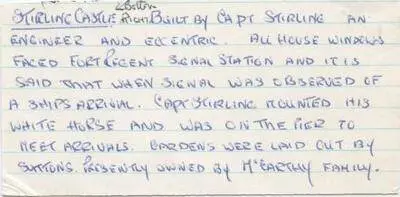 Bottom
STIRLING CASTLE RIGHT BUILT BY CAPT STIRLING AN
ENGINEER AND ECCENTRIC. ALL HOUSE WINDOWS
FACED FORT REGENT SIGNAL STATION AND IT IS
SAID THAT WHEN SIGNAL WAS OBSERVED OF
A SHIPS ARRIVAL. CAPT STIRLING MOUNTED HIS
WHITE HORSE AND WAS ON THE PIER TO
MEET ARRIVALS. GARDENS WERE LAID OUT BY
SUTTONS. PRESENTLY OWNED BY McCARTHY FAMILY.